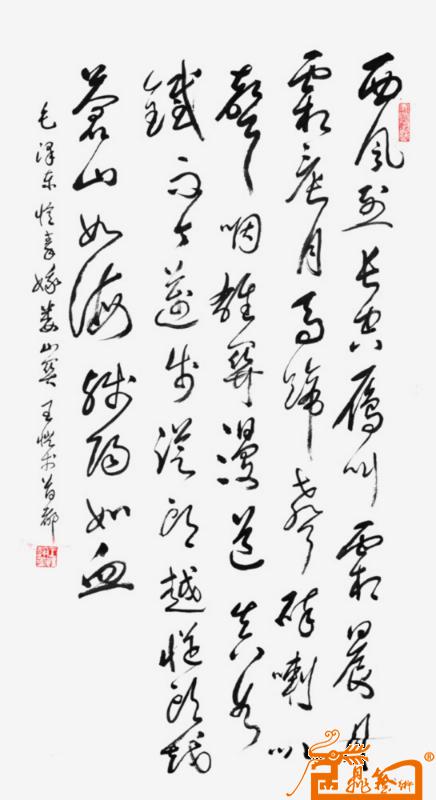 西风烈长空雁叫霜晨月
霜晨月马蹄声碎喇叭
声咽雄关漫道真如
鐵而今迈步从头越从头越
苍山如海残阳如血
毛泽东忆秦娥娄山关 王 首都